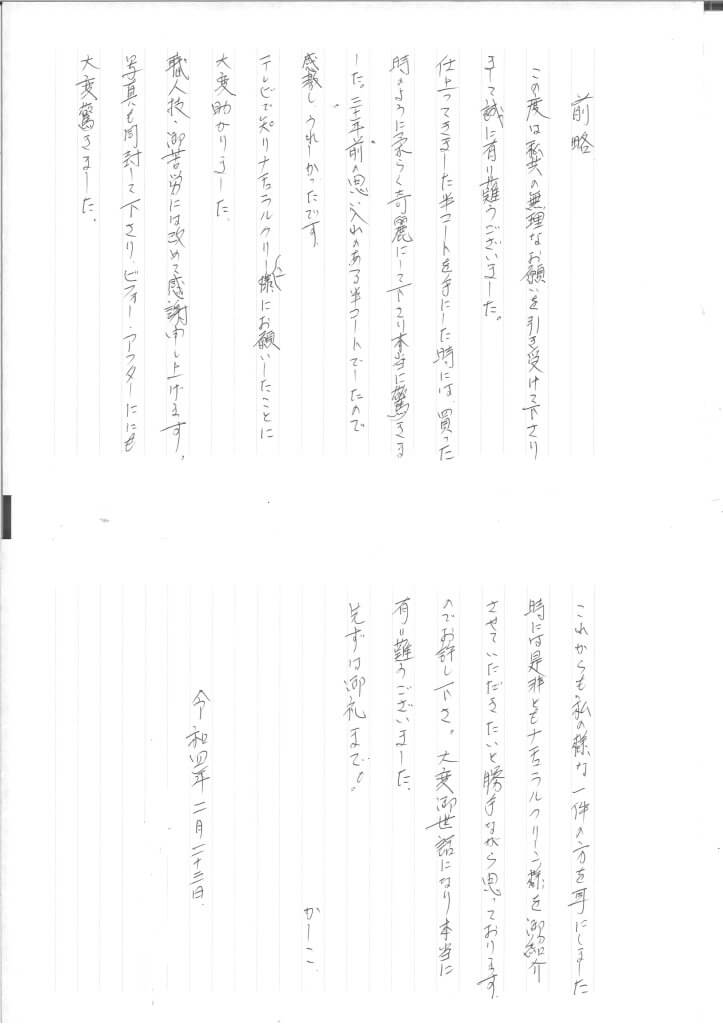 前略
この度は私共の無理なお願いを引き受けて下さり
まして誠に有り難うございました。
仕上ってきました半コートを手にした時には、買った
時のように柔らく奇麗にして下さり本当に驚きま
した。三十年前の思い入れのある半コートでしたので
感激しうれしかったです。
テレビで知りナチュラルクリーン様にお願いしたことに
大変助かりました。
職人技・御苦労には改めて感謝申し上げます。
写真も同封して下さり、ビフォー・アフターにも
大変驚きました。
これからも私の様な一件の方を耳にしました
時には是非ともナチュラルクリーン様を御紹介
させていただきたいと勝手ながら思っております
のでお許し下さ。大変御世話になり本当に
有り難うございました。
先ずは御礼まで。
かしこ
令和四年 二月二十三日